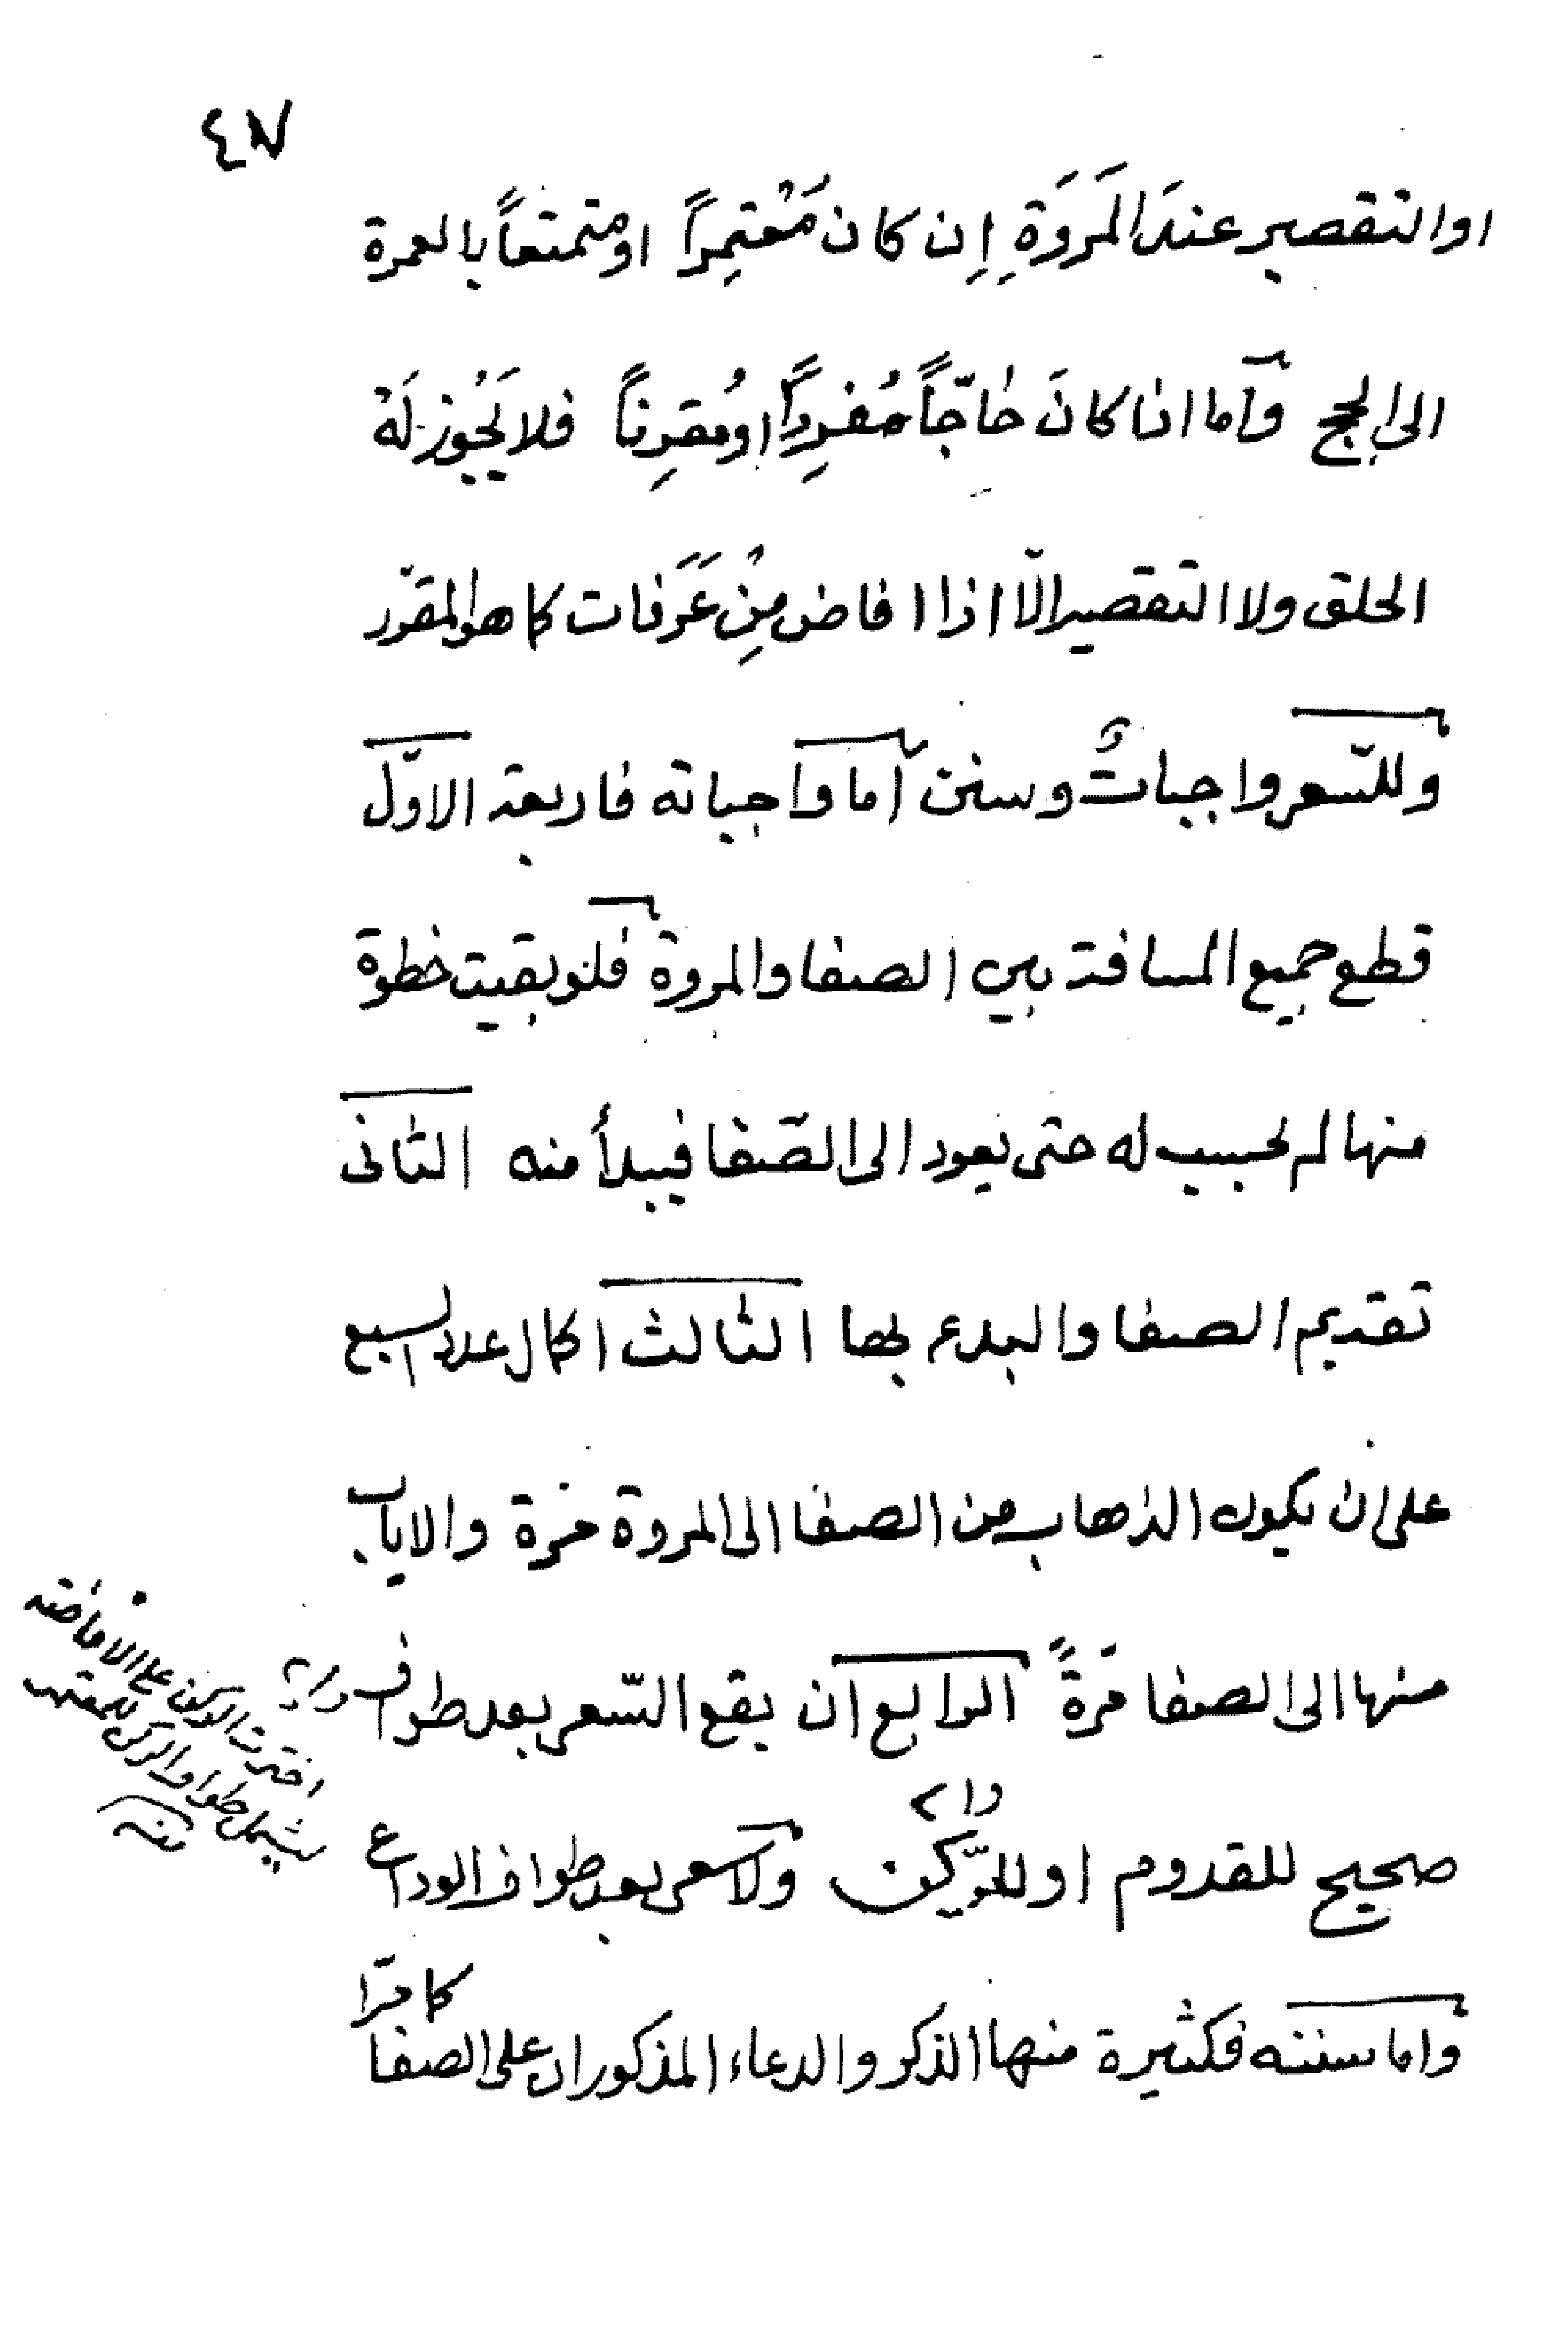 ٤٧
او التقصير عندَ المَروَةِ إِن كان مُعْتَمِراً او متمتعاً بالعمرة
الى الحج وأما اذا كانَ حاجّاً مُفرِداً او مُقرِناً فلا يَجُوز لَهُ
الحلق ولا التقصير الّا اذا افاض مِنْ عَرَفات كما هو المقرّر
وللسّعى واجباتٌ وسنن أما واجباته فاربعة الاوّل
قطع جميع المسافة بين الصفا والمروة فلو بقيت خطوة
منها لم يحسب له حتى يعود الى الصّفا فيبدأ منه الثانى
تقديم الصفا والبدء بها الثالث اكمال عدد السبع
على ان يكون الذهاب من الصفا الى المروة مرة والاياب
منها الى الصفا مرةً الرابع ان يقع السّعى بعد طواف
صحيح للقدوم او للرّكن ولا سعى بعد طواف الوداع
واما سننه فكثيرة منها الذكر والدعاء المذكوران على الصفا
كما مرّا
اخترت الركن على الافاضة
ليشمل طواف الركن للمعتمر
منه